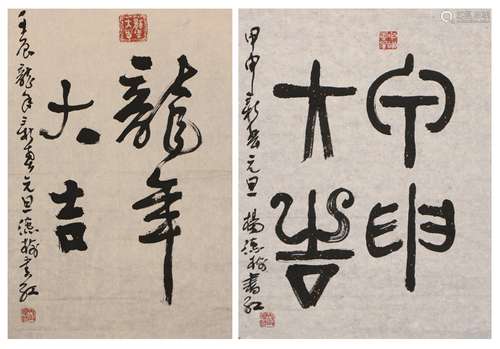 龍年
大吉
壬辰龍年新春元旦德榆書紅
甲申
大吉
甲申新春元旦楊德榆書紅